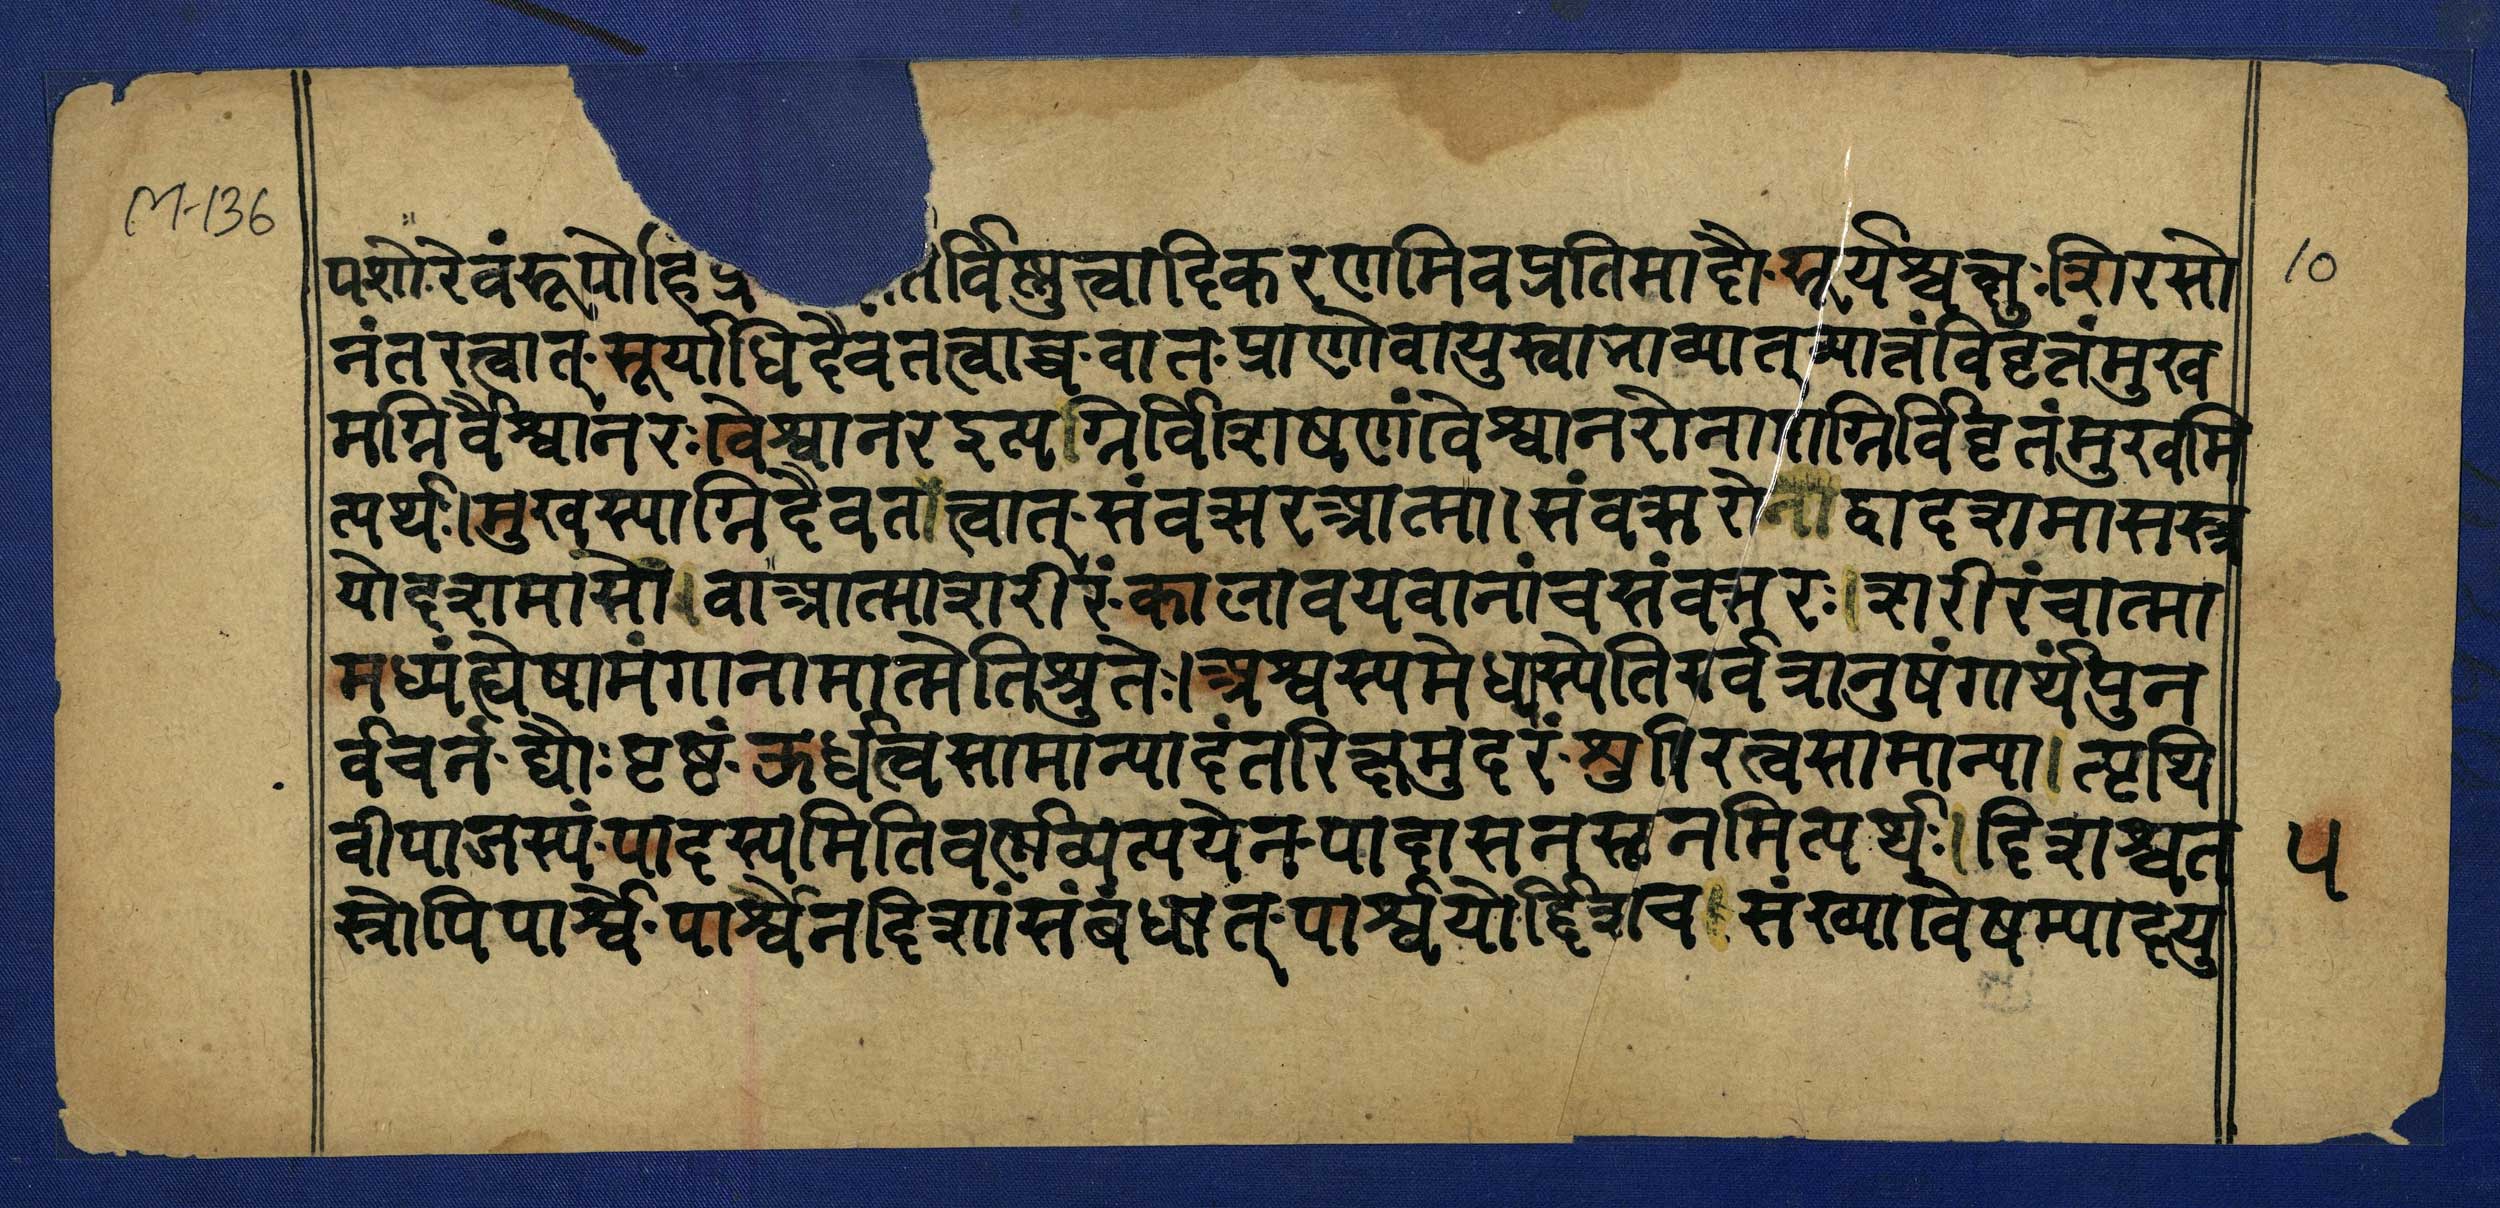 M-136
पशोरेवंरूपोहिप्र तेर्विष्णुत्त्वादिकरणमिवप्रतिमादौ॰सूर्यश्चक्षुःशिरसो
10
नंतरत्वात्॰सूर्याधिदैवंतत्वाच्च॰वातःप्राणोवायुस्वाभाव्यात्व्यात्तंविवृत्तंमुख
मग्निर्वैश्वानरःवैश्वानरइत्यग्निर्विशेषणंवैश्वानरोनामाग्निर्विवृतंमुखमि
त्यर्थः।मुखस्याग्निदैवतत्त्वात्॰संवत्सरआत्मा।संवत्सरोद्वादशमासस्त्र
योदशमासो।वाआत्माशरीरं॰कालावयवानांचसंवत्सरः।शरीरंचात्मा
मध्यंह्येषामंगानामात्मेतिश्रुतेः।अश्वस्यमेध्यस्येतिसर्वत्रानुषंगार्थंपुन
र्वचनं॰द्यौःपृष्ठं॰ऊर्ध्वत्वसामान्यादंतरिक्षमुदरं॰श्रुषिरत्वसामान्या।त्पृथि
वीपाजस्यं॰पादस्यमितिवर्णव्यत्ययेन॰पादासनस्छानमित्यर्थः।दिशश्चत
५
स्त्रोपिपार्श्वे॰पार्श्वेनदिशांसंबंधात्॰पार्श्वयोर्दिशच।संख्यावैषम्यादयु